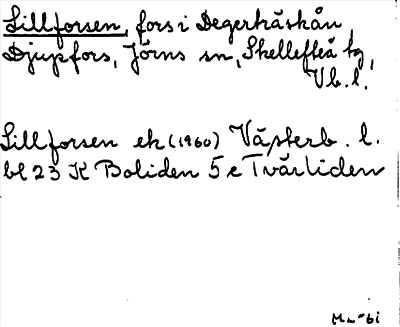 Lillforsen, fors i Degerkäskån,
Djupfors, Jörns sn, Skellefteå tg,
Vb.l.
Lillforsen ek (1960) Västerb. l.
bl 23 K Boliden 5 e Tvärliden